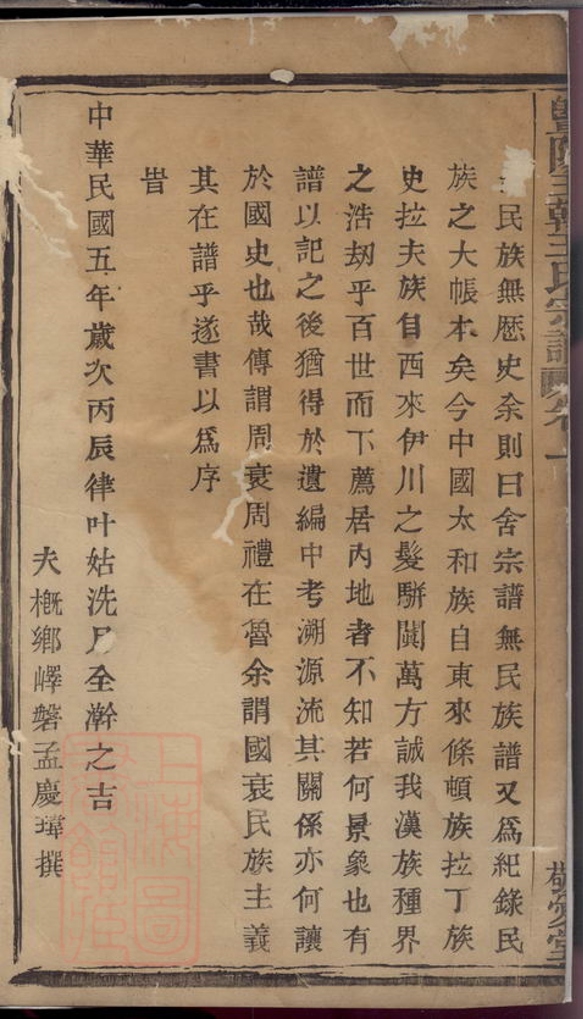 民族無歷史余則曰舍宗譜無民族譜又爲紀錄民
族之大帳本矣今中國太和族自東來條頓族拉丁族
史拉夫族自西來伊川之髮駢闐萬方誠我漢族種界
之浩劫乎百世而下薦居內地者不知若何景象也有
譜以記之後猶得於遺編中考溯源流其關係亦何讓
於國史也哉傳謂周衰周禮在魯余謂國衰民族主義
其在譜乎遂書以爲序
旹
中華民國五年歲次丙辰律叶姑洗月全澣之吉
夫槪鄉嶧磐孟慶璋撰
王氏宗譜 卷一
敬愛堂
上海圖